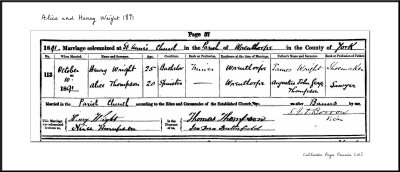 Alice and Henry Wright 1891
Page 57
1891. Marriage solemnized at St Anne's Church in the Parish of Wrenthorpe in the County of York
No. When Married. Name and Surname. Age. Condition. Rank or Profession. Residence at the time of Marriage. Father's Name and Surname. Rank or Profession of Father.
113 October 10 1891 Henry Wright 25 Bachelor Wrenthorpe James Wright Shoemaker
Alice Thompson 20 Spinster — Wrenthorpe Augustus John Thompson Sawyer
Married in the Parish Church according to the Rites and Ceremonies of the Established Church, by or after Banns by me,
This Marriage was solemnized between us, Henry Wright
Alice Thompson
in the Presence of us, Thomas Thompson
Butterfield
Vicar